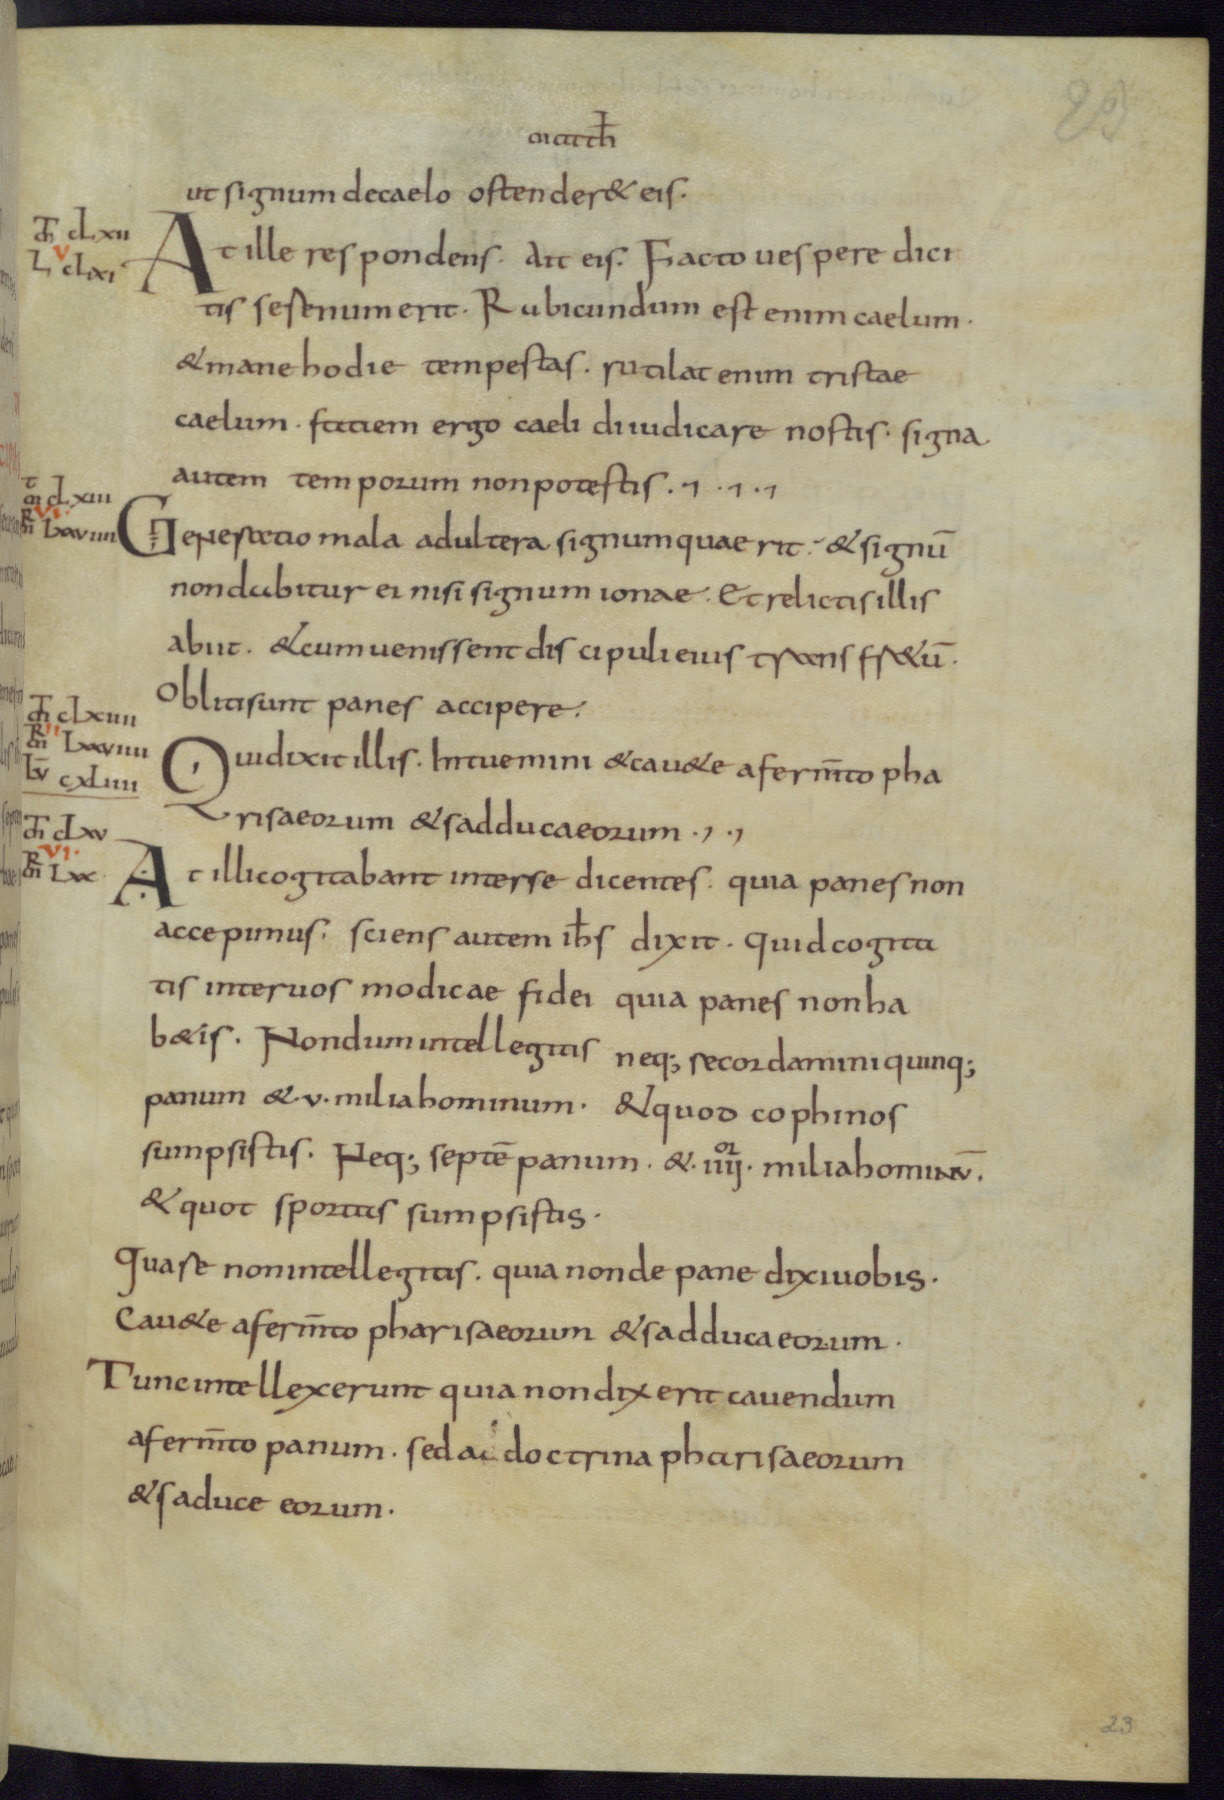 matth
29
ut signum decaelo ostender& eis.
mt cLxii
L v cLxi
At ille respondens. Ait eis. Facto uespere dici
tis serenum erit. Rubicundum est enim caelum.
&mane hodie tempestas. rutilat enim tristae
caelum. faciem ergo caeli diiudicare nostis. signa
autem temporum non potestis.
mt cLxiii
vi
mr Lxxviiii
Generatio mala adultera signum quaerit. & signū
non dabitur ei nisi signum ionae. Et relictis illis
abiit. &cum uenissent discipuli eius trans fr&ū.
Obliti sunt panes accipere.
mt cLxiiii
ii
mr Lxxviiii
Lū cxLiiii
Qui dixit illis. Intuemini &cau&e a ferm̄to pha
risaeorum &sadducaeorum.
mt cLxv
vi
mr Lxx
At illi cogitabant inter se dicentes. quia panes non
accepimus. sciens autem ih̄s dixit. quid cogita
tis inter uos modicae fidei quia panes non ha
b&is. Nondum intellegitis neq; recordamini quinq;
panum &.v.milia hominum. &quod cophinos
sumpsistis. Neq; septē panum. &.iiij or. milia hominū.
&quot sportas sumpsistis.
Quare non intellegitis. quia non de pane dixi uobis.
Cau&e a ferm̄to pharisaeorum &sadducaeorum.
Tunc intellexerunt quia non dixerit cauendum
a ferm̄to panum. sed a doctrina pharisaeorum
&saduce eorum.
23